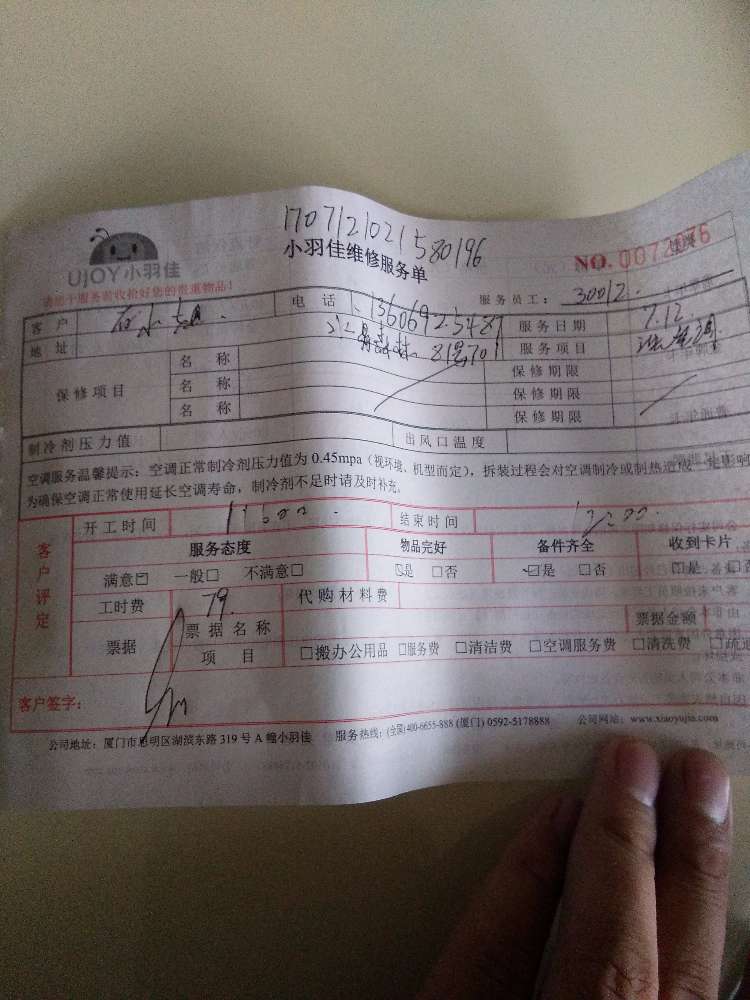 1707121021580196
UJOY小羽佳
小羽佳维修服务单
NO.0072076
服务员工：30012
客户 电话 13606925487 服务日期 7.12.
地址 8号701 服务项目
保修项目 名称 保修期限
名称 保修期限
名称 保修期限
制冷剂压力值 出风口温度
空调服务温馨提示：空调正常制冷剂压力值为0.45mpa（视环境、机型而定），拆装过程会对空调制冷或制热造成一定影响
为确保空调正常使用延长空调寿命，制冷剂不足时请及时补充。
客户评定
开工时间 结束时间
服务态度 物品完好 备件齐全 收到卡片
满意□ 一般□ 不满意□ □是 □否 □是 □否 □是 □否
工时费 79. 代购材料费
票据 票据名称 票据金额
项目 □搬办公用品 □服务费 □清洁费 □空调服务费 □清洗费 □疏通
客户签字：
公司地址：厦门市思明区湖滨东路319号A幢小羽佳 服务热线：(全国)400-6655-888 (厦门) 0592-5178888 公司网站：www.xiaoyujia.com